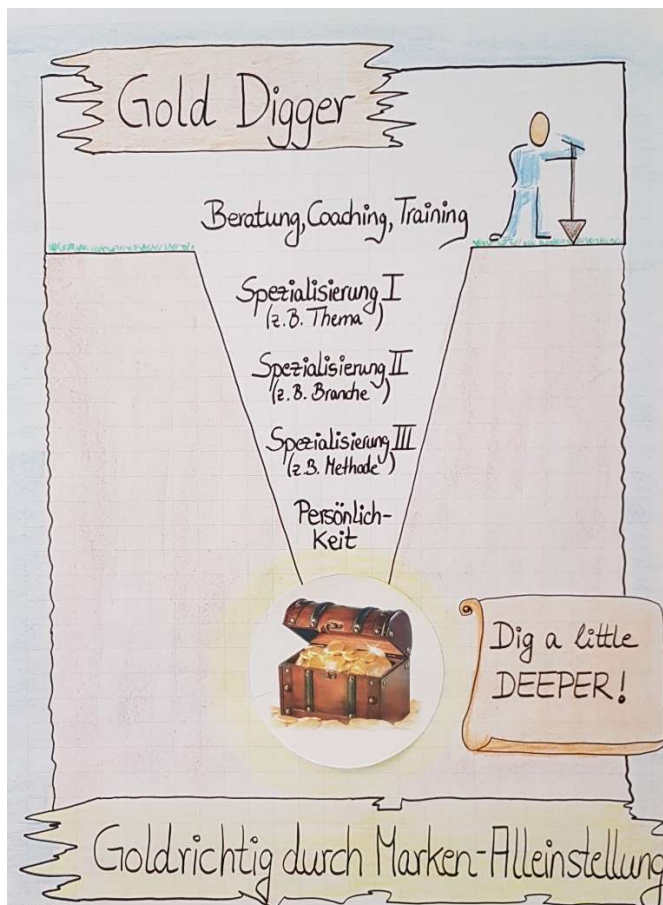 Gold Digger
Beratung, Coaching, Training
Spezialisierung I
(z.B. Thema)
Spezialisierung II
(z.B. Branche)
Spezialisierung III
(z.B. Methode)
Persönlich-
keit
Dig a little
DEEPER!
Goldrichtig durch Marken-Alleinstellung